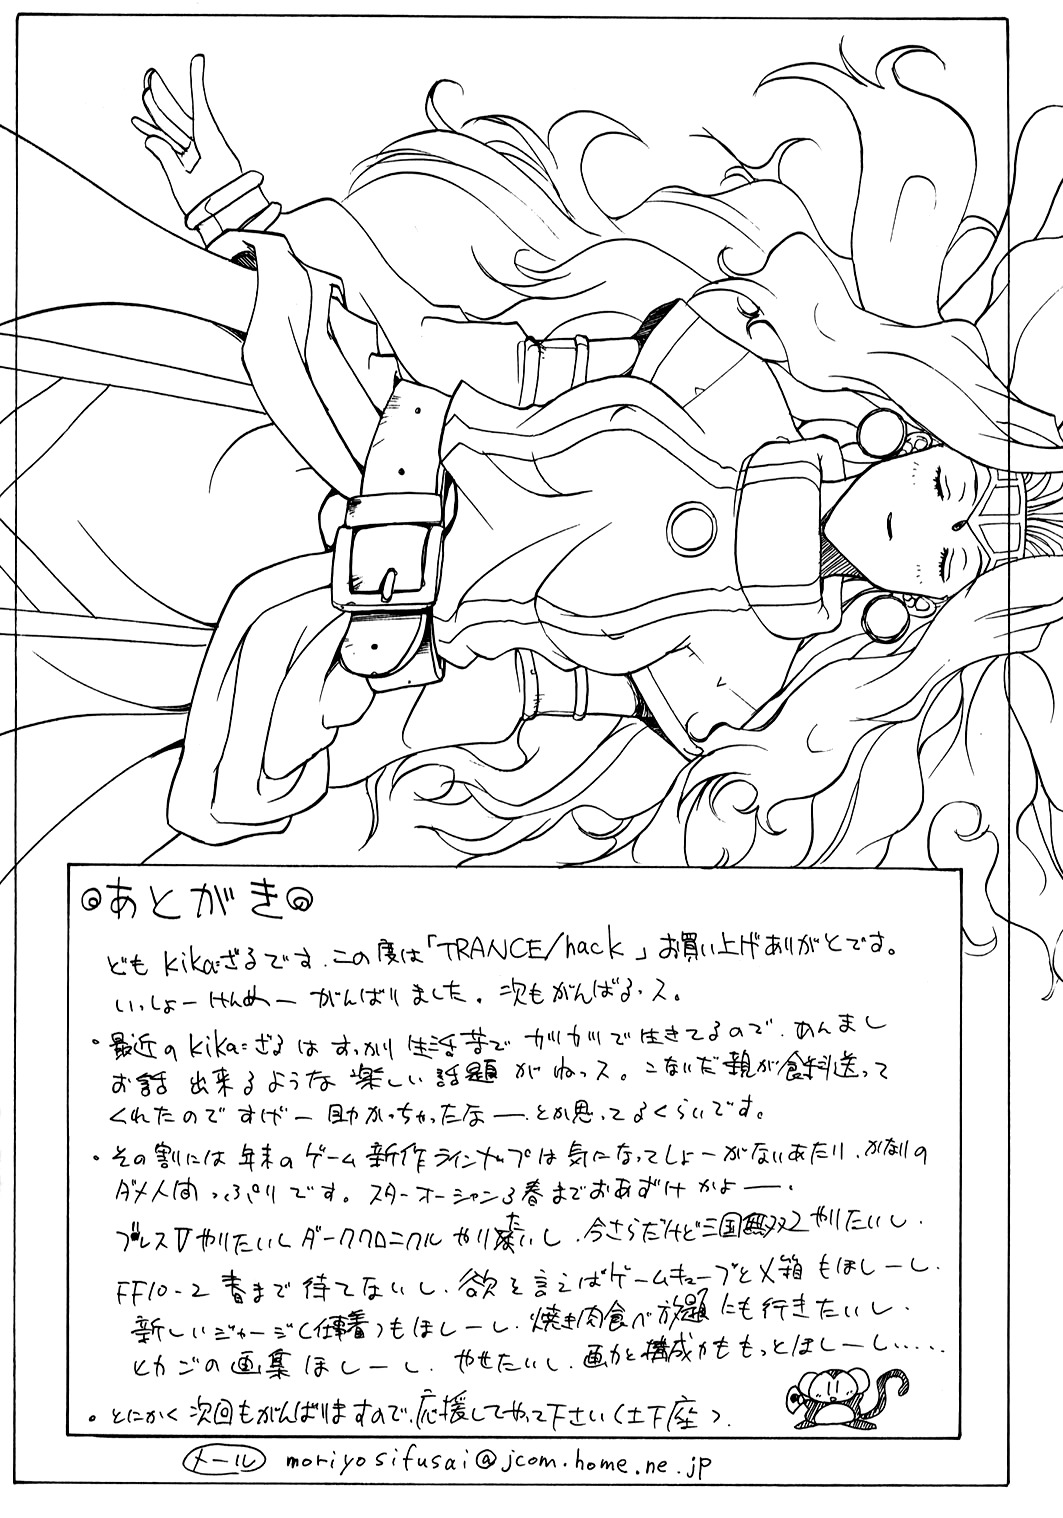 あとがき
ども kika=ざるです。この度は「TRANCE/hack」お買い上げありがとです。
いっしょーけんめー がんばりました。次もがんばるっス。
・最近の kika=ざるは すっかり 生活苦で ガリガリで生きてるので、あんまし
お話 出来るような 楽しい 話題 がねっス。こないだ親が食料送って
くれたので すげー 助かっちゃったなー、とか思ってるくらいです。
・その割には 年末の ゲーム 新作 ラインナップは 気になってしょーがないあたり、かなりの
ダメ人間っぷりです。スターオーシャン3春までおあずけ かよー。
ブレスⅤやりたいし ダーククロニクル やりたいし、今さらだけど三国無双2やりたいし、
FF10-2 春まで 待てないし、欲を言えばゲームキューブとX箱もほしーし、
新しいジャージ(仕事着)もほしーし、焼き肉食べ放題にも行きたいし、
ヒカゴの画集 ほしーし、やせたいし、画力と構成力ももっとほしーし……
・とにかく 次回もがんばりますので、応援してやって下さい(土下座)。
メール moriyosifusai@jcom.home.ne.jp